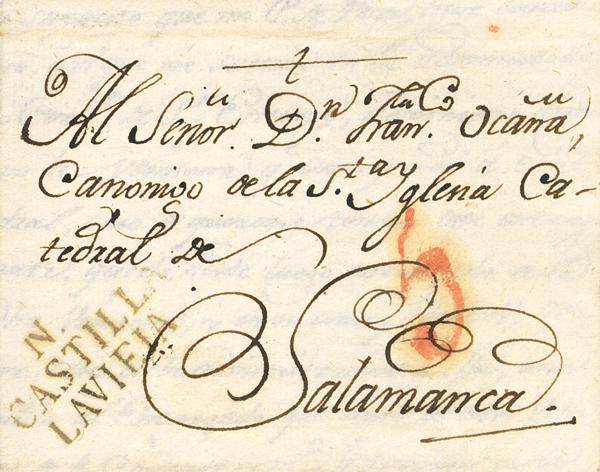 Al Señor. Dn. Franco. Ocaña,
Canonigo de la S.ta Yglesia Ca-
tedral de
Salamanca.
N
CASTILLA
LAVIEIA